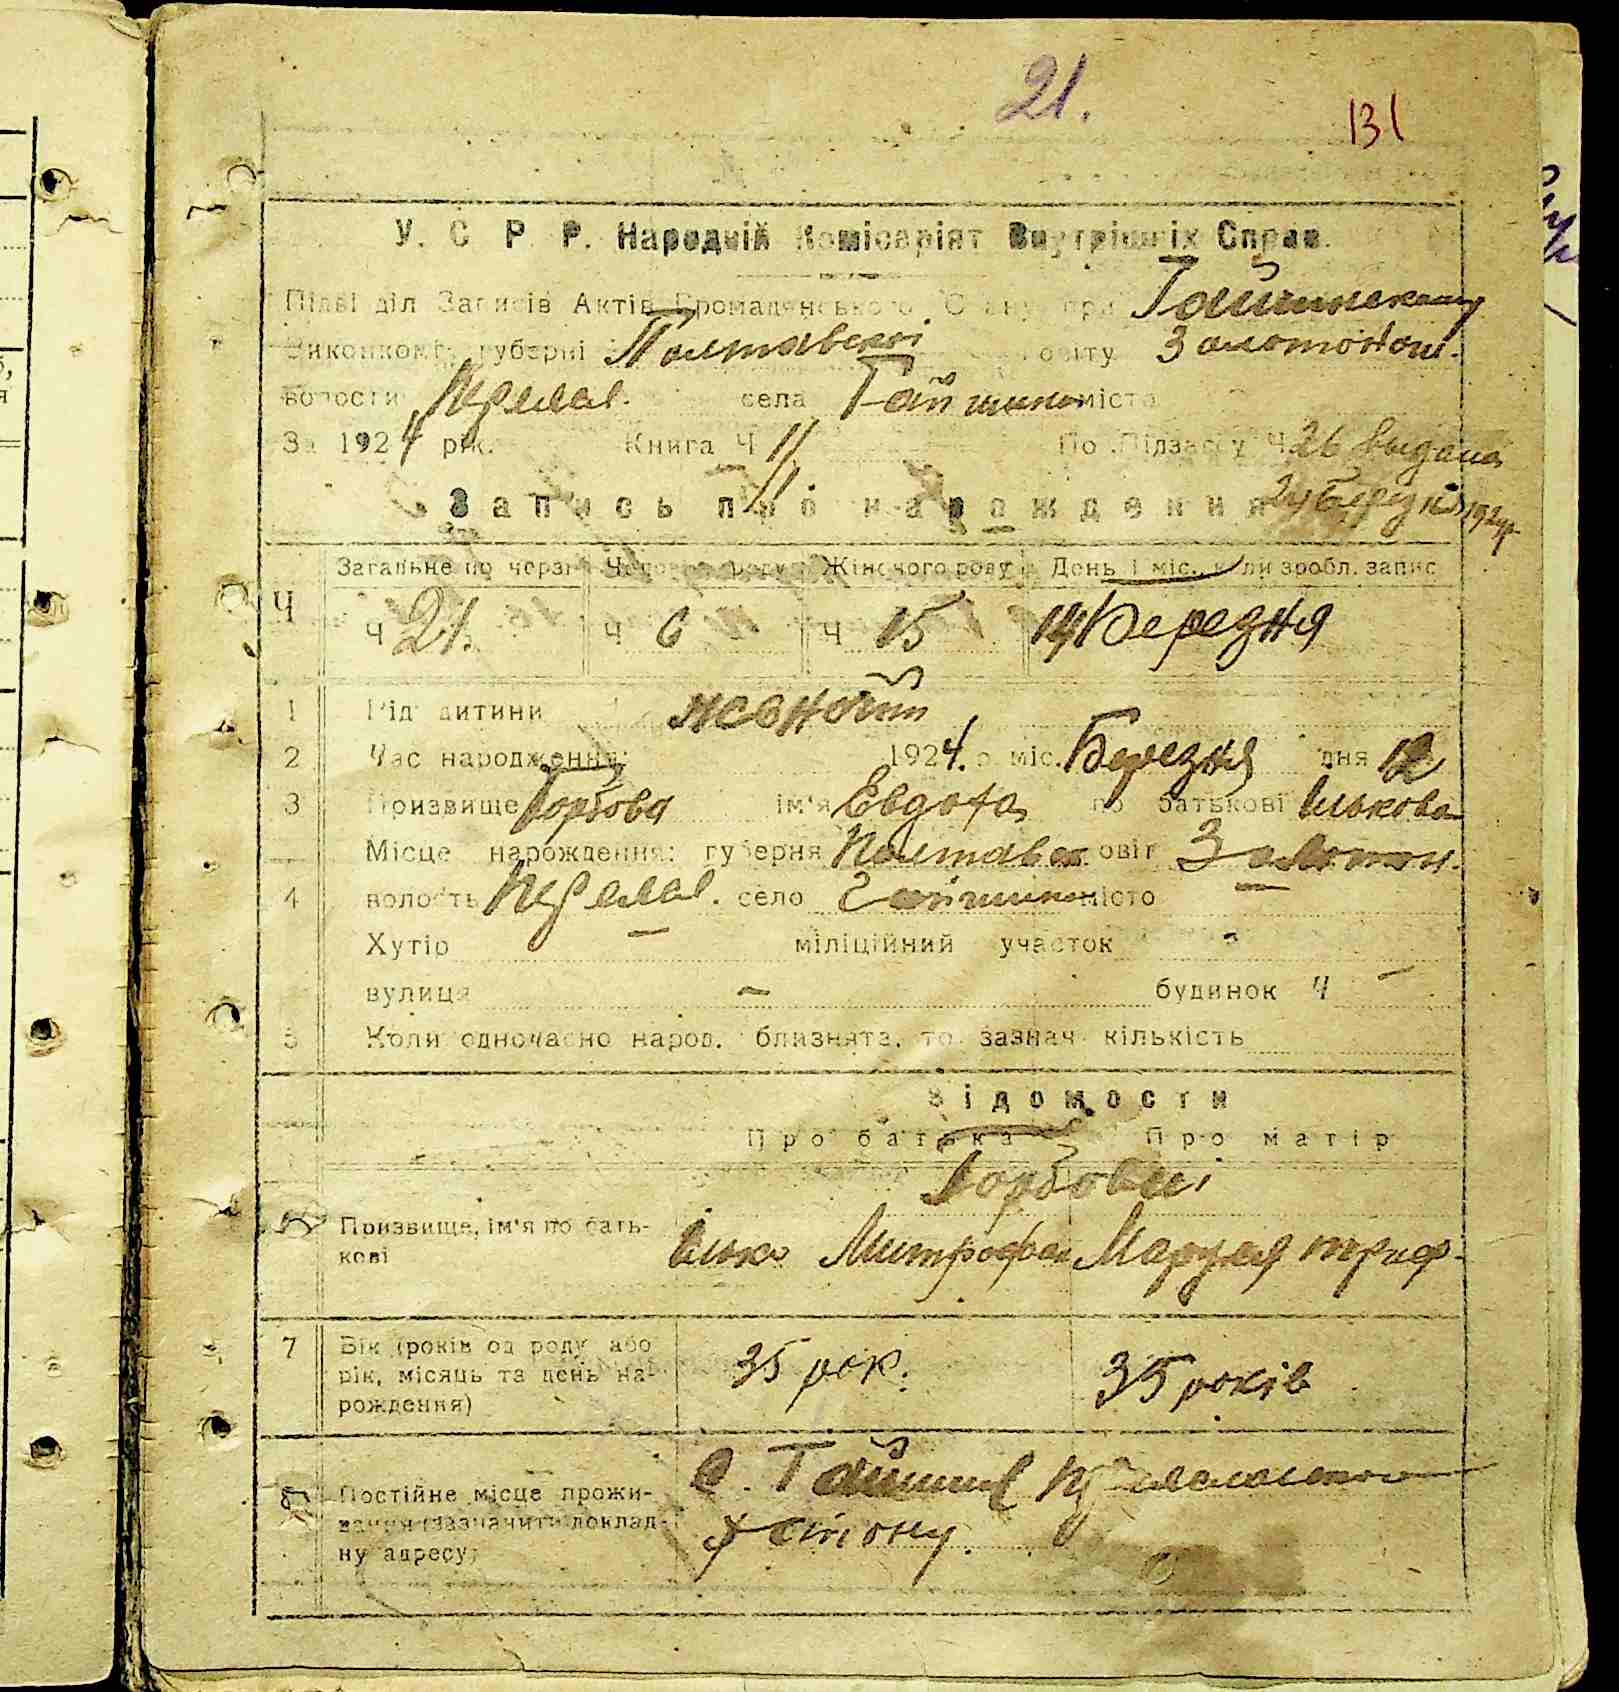 21.
131
У. С. Р. Р. Народній Комісаріят Внутрішніх Справ.
Підвідділ Записів Актів Громадянського Стану при Гайшинському
Виконкомі губерні Полтавскоі повіту Золотонош.
волости Переясл. села Гайшина міста
За 1924 рік. Книга Ч II По Підзагсу Ч 26 выдана
24 Березня 1924р
Запись про народження
Загальне по черзі Чоловічого роду Жіночого роду День і міс., коли зробл. запис
Ч Ч 21. Ч 6 Ч 15 14 Березня
1 Рід дитини женочій
2 Час народження: 1924. р. міс. Березня дня 12
3 Призвище Горбова ім'я Евдоха по батькові Ількова
Місце нарождення: губерня Полтавск повіт Золотон.
4 волость Переясл. село Гайшина місто —
Хутір — міліційний участок -
вулиця — будинок Ч —
5 Коли одночасно народ. близнята, то зазнач. кількість
Відомости
Про батька Про матір
Горбовы
6 Призвище, ім'я по бать-
кові
Илько Митрофан Маруся триф.
7 Вік (років од роду або
рік, місяць та день на-
рождення)
35 рок. 35 років
8 Постійне місце прожи-
вання (зазначити доклад-
ну адресу)
с. Гайшин